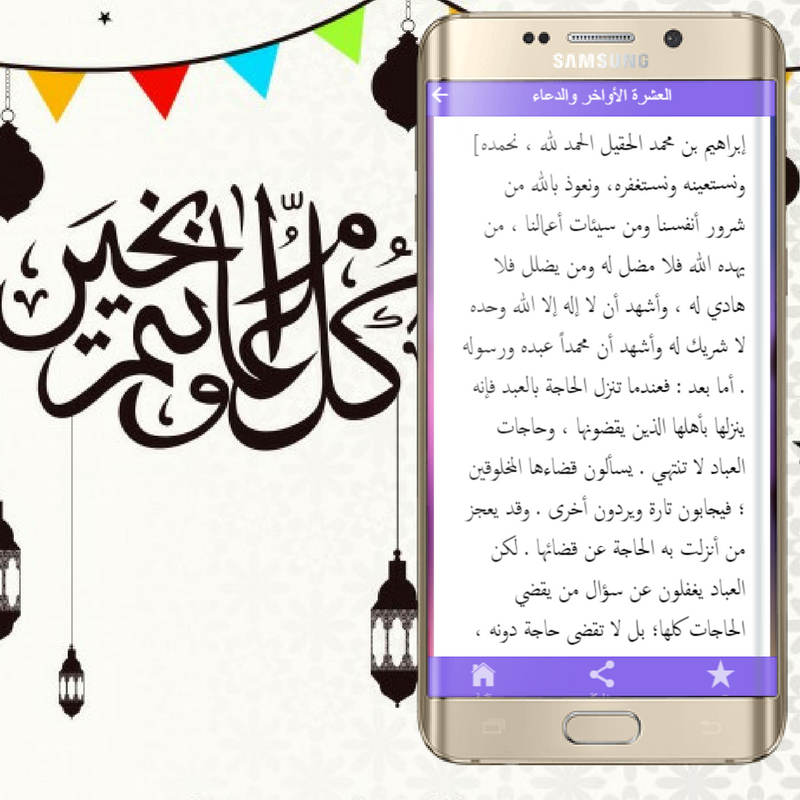 كل عام وأنتم بخير
SAMSUNG
العشرة الأواخر والدعاء
إبراهيم بن محمد الحقيل الحمد لله ، نحمده]
ونستعينه ونستغفره، ونعوذ بالله من
شرور أنفسنا ومن سيئات أعمالنا ، من
يهده الله فلا مضل له ومن يضلل فلا
هادي له ، وأشهد أن لا إله إلا الله وحده
لا شريك له وأشهد أن محمداً عبده ورسوله
. أما بعد : فعندما تنزل الحاجة بالعبد فإنه
ينزلها بأهلها الذين يقضونها ، وحاجات
العباد لا تنتهي . يسألون قضاءها المخلوقين
؛ فيجابون تارة ويردون أخرى . وقد يعجز
من أنزلت به الحاجة عن قضائها . لكن
العباد يغفلون عن سؤال من يقضي
الحاجات كلها؛ بل لا تقضى حاجة دونه ،